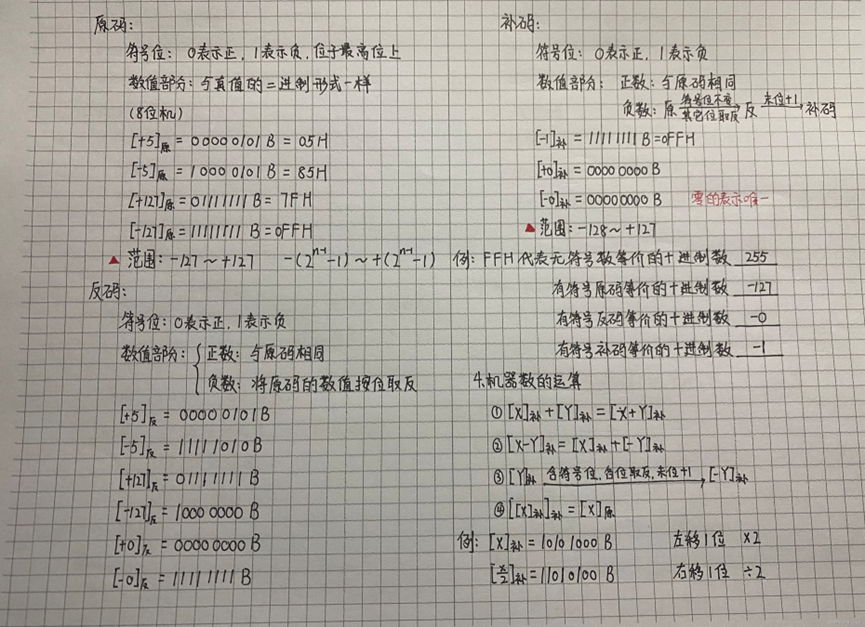 原码:
符号位: 0表示正, 1表示负, 位于最高位上
数值部分: 与真值的二进制形式一样
(8位机)
[+5]原 = 0000 0101 B = 05H
[-5]原 = 1000 0101 B = 85H
[+127]原 = 01111111 B = 7FH
[-127]原 = 11111111 B = 0FFH
▲ 范围: -127 ~ +127  -(2ⁿ⁻¹-1) ~ +(2ⁿ⁻¹-1)
反码:
符号位: 0表示正, 1表示负
数值部分: { 正数: 与原码相同
负数: 将原码的数值按位取反
[+5]反 = 0000 0101 B
[-5]反 = 1111 1010 B
[+127]反 = 0111 1111 B
[-127]反 = 1000 0000 B
[+0]反 = 0000 0000 B
[-0]反 = 1111 1111 B
补码:
符号位: 0表示正, 1表示负
数值部分: 正数: 与原码相同
负数: 原 符号位不变 其它位取反→ 反 末位+1→ 补码
[-1]补 = 1111 1111 B = 0FFH
[+0]补 = 0000 0000 B
[-0]补 = 0000 0000 B 零的表示唯一
▲ 范围: -128 ~ +127
例: FFH 代表无符号数等价的十进制数 255
有符号原码等价的十进制数 -127
有符号反码等价的十进制数 -0
有符号补码等价的十进制数 -1
4.机器数的运算
① [X]补 + [Y]补 = [X+Y]补
② [X-Y]补 = [X]补 + [-Y]补
③ [Y]补 含符号位, 各位取反, 末位+1→ [-Y]补
④ [[X]补]补 = [X]原
例: [X]补 = 1010 1000 B 左移1位 ×2
[X/2]补 = 1101 0100 B 右移1位 ÷2